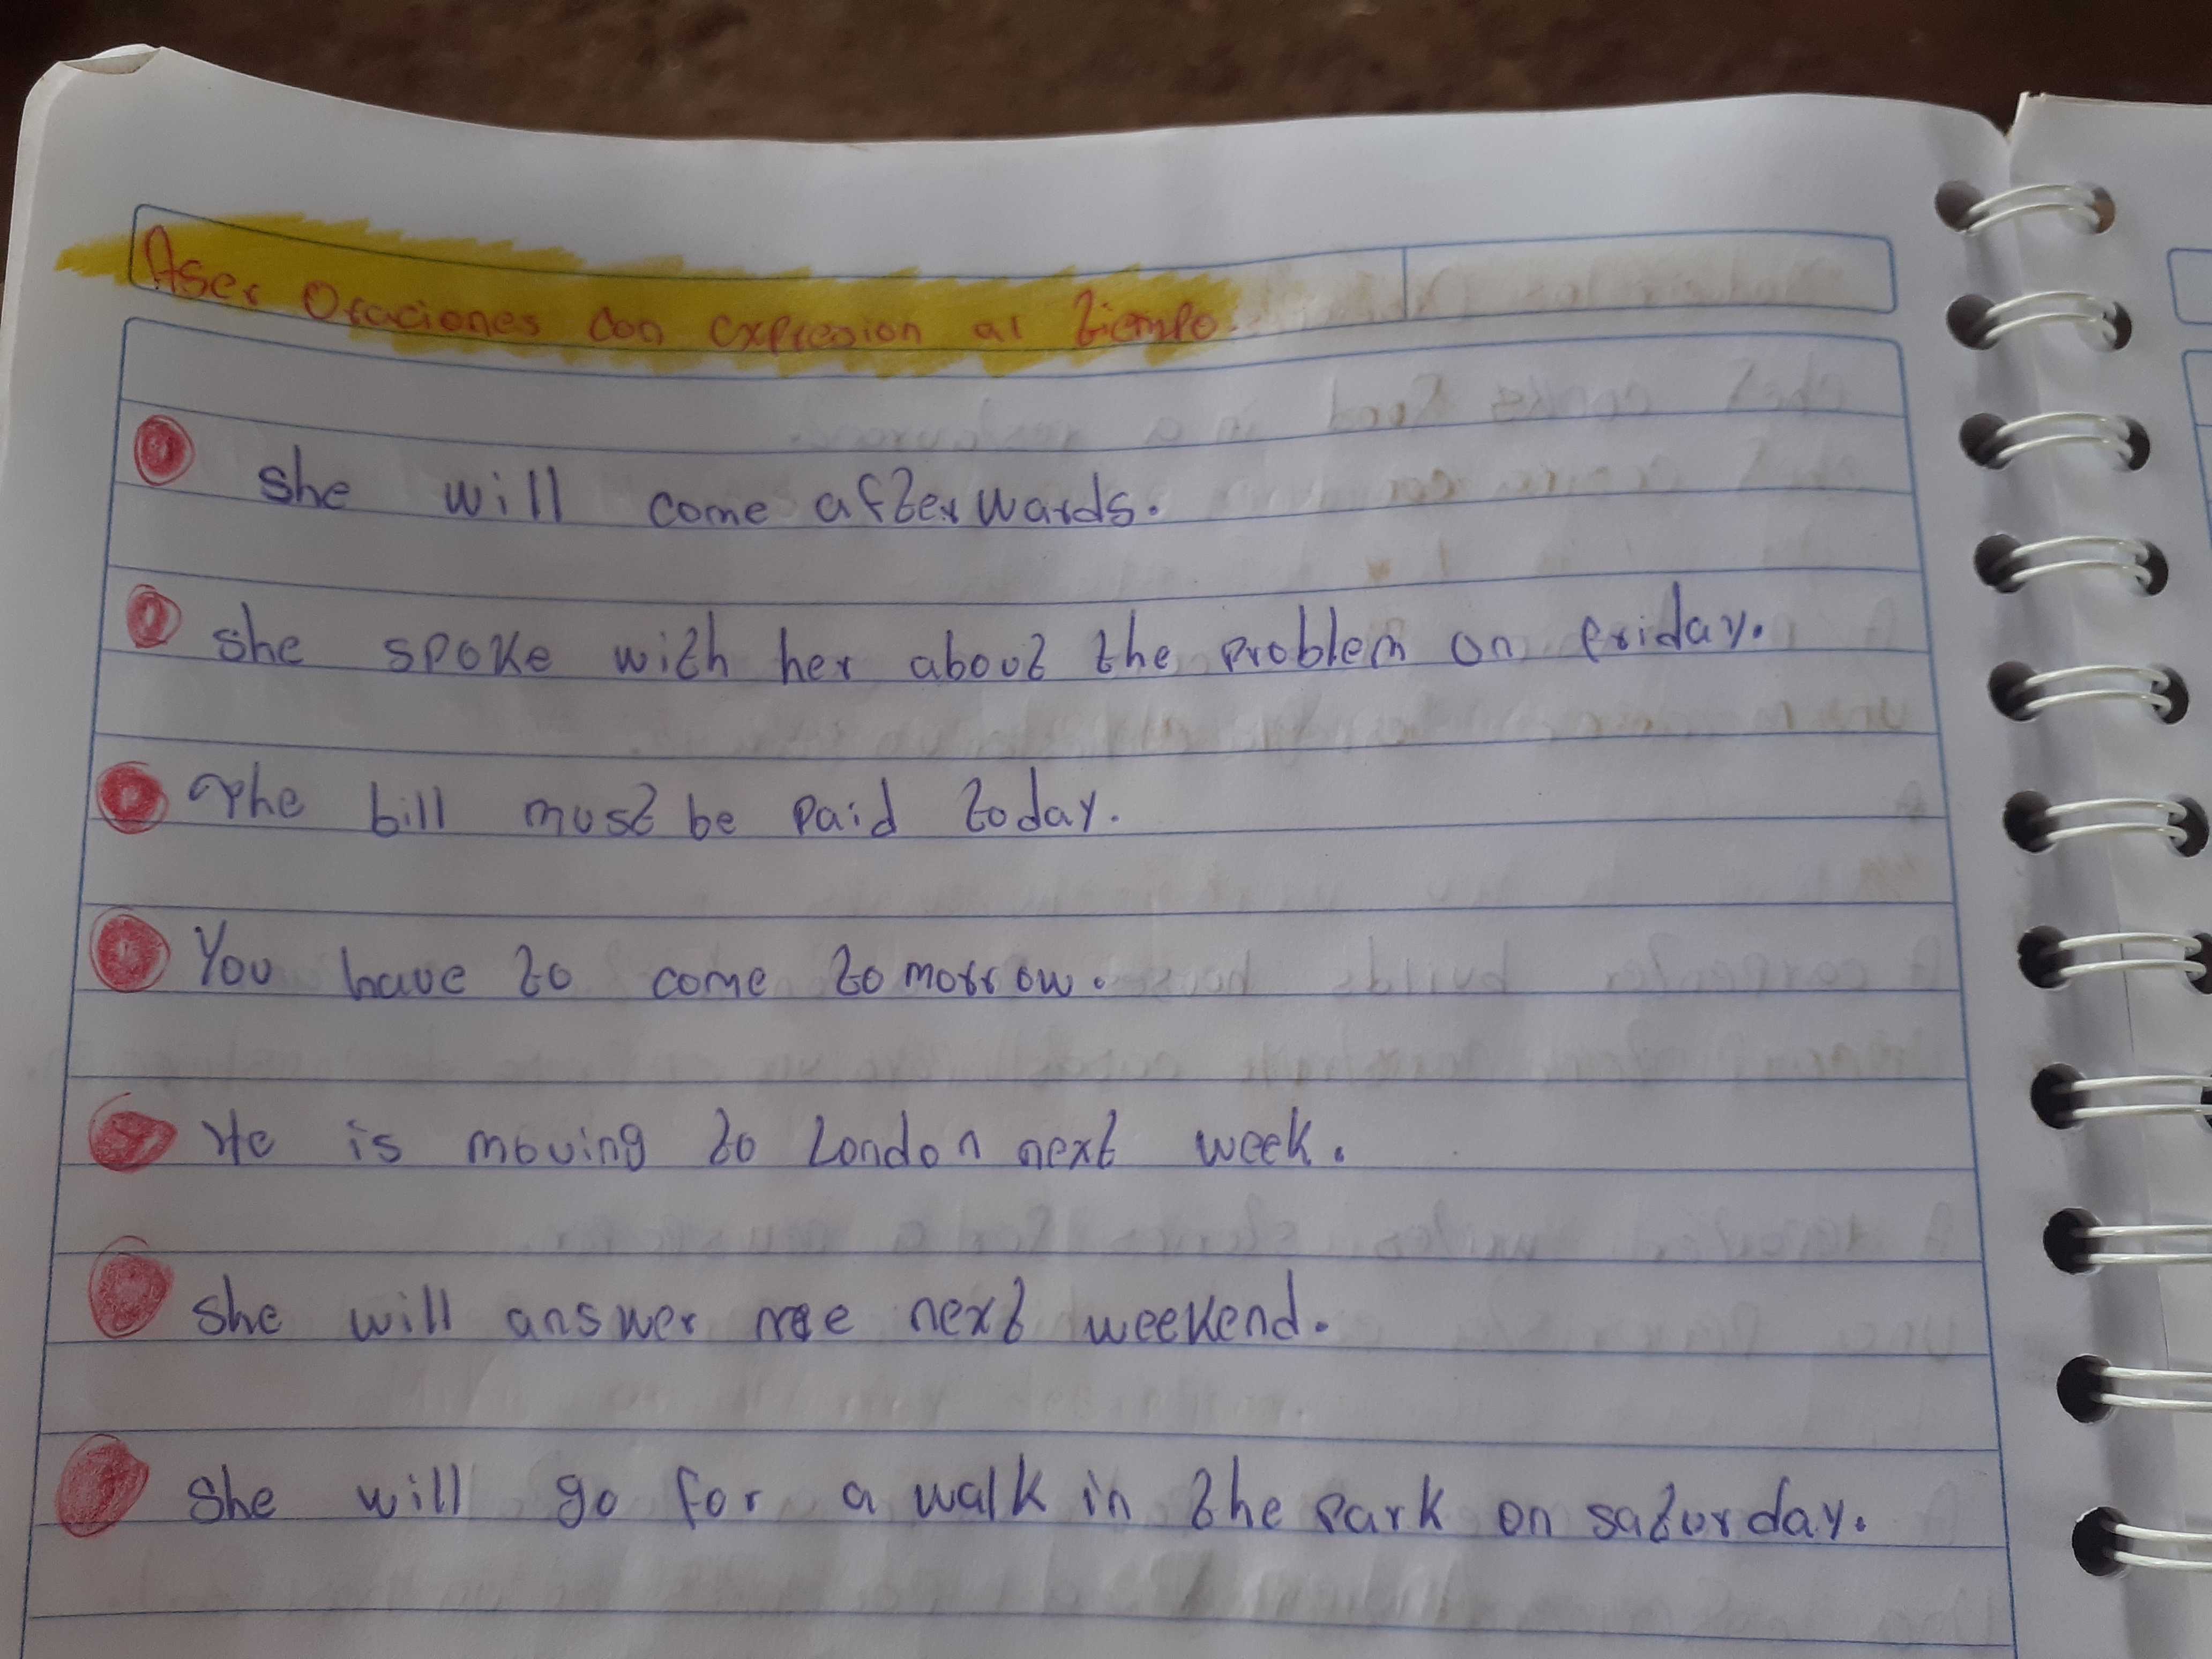 Aser Oraciones con expresion al tiempo.
she will come afterwards.
she spoke with her about the problem on friday.
The bill must be paid today.
You have to come tomorrow.
He is moving to London next week.
She will answer me next weekend.
She will go for a walk in the park on saturday.